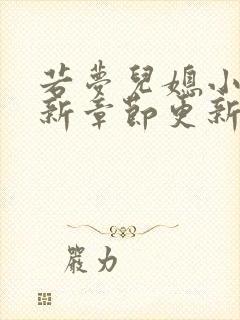 若夢兒媳小
新章節更新
嚴力